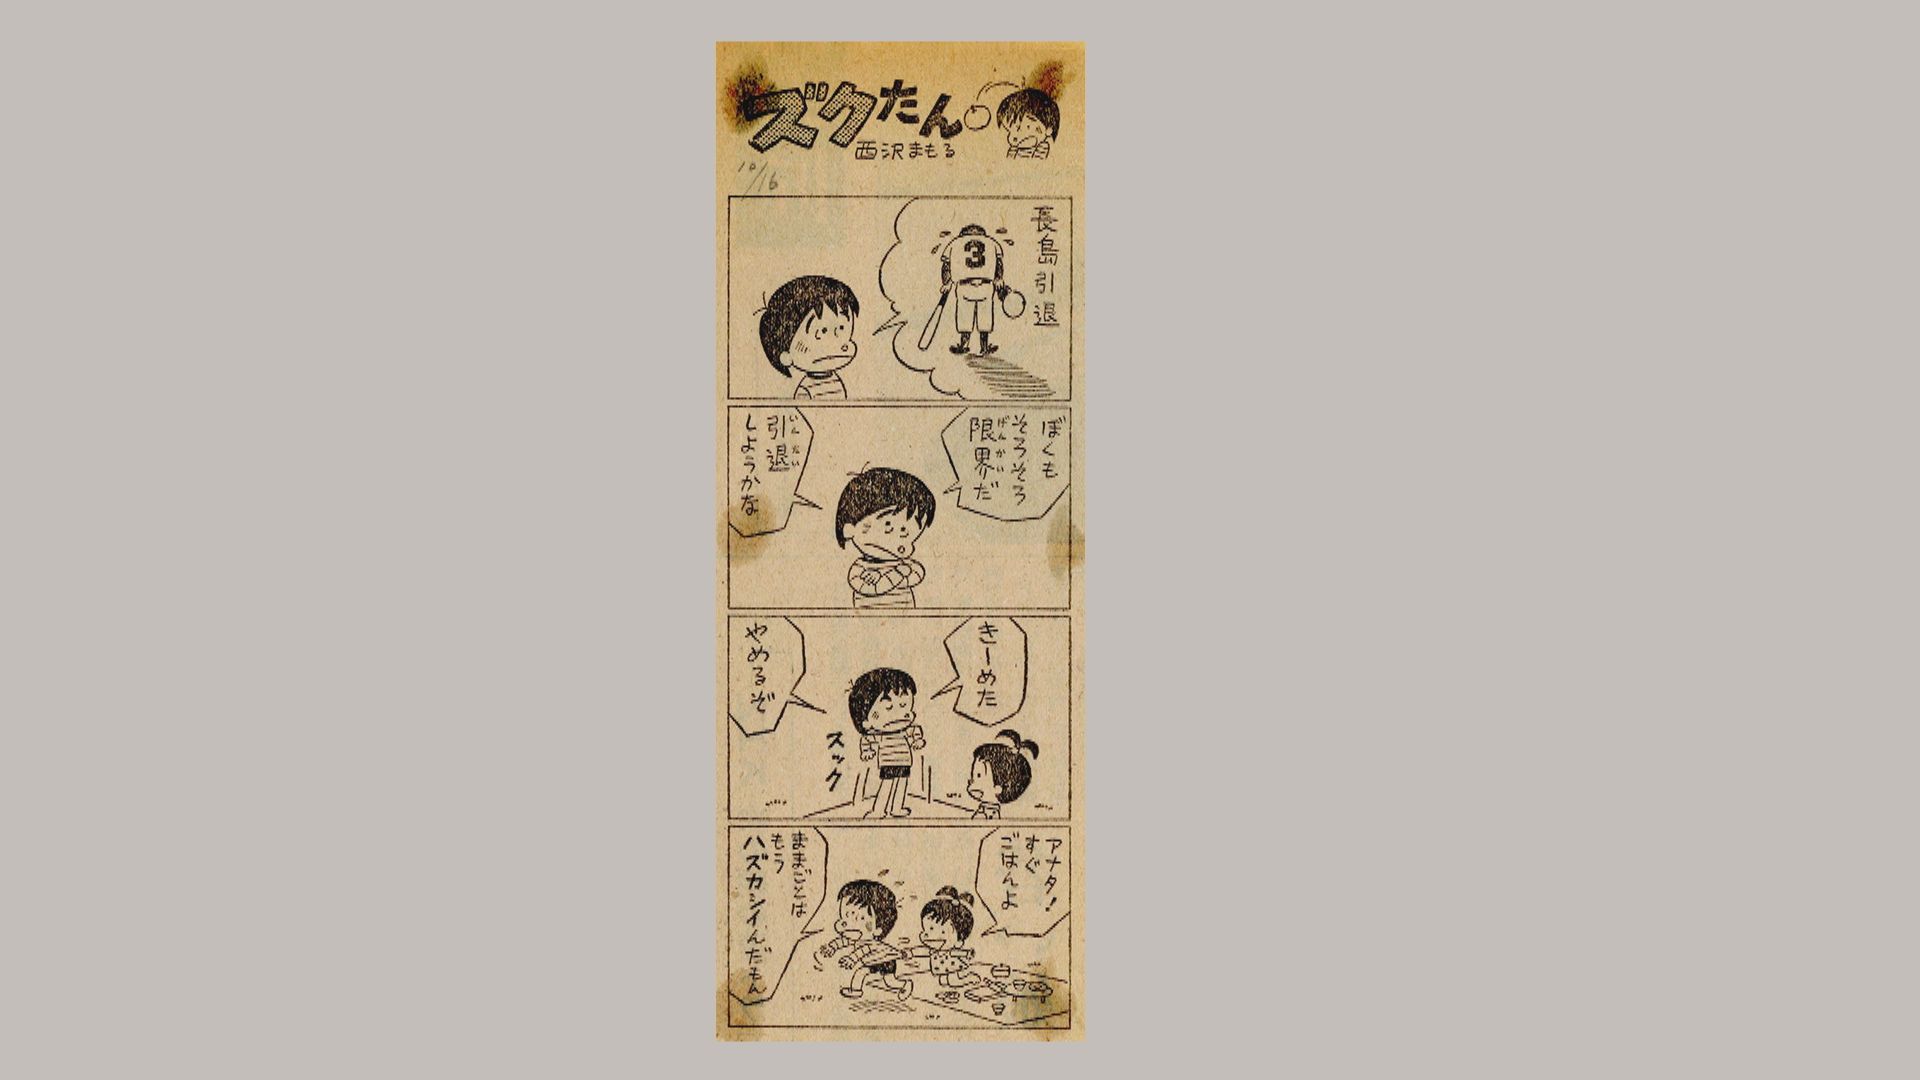 ズクたん
西沢まもる
10/16
長島引退
3
ぼくも
そろそろ
限界だ
げんかい
引退
いんたい
しようかな
きーめた
やめるぞ
スック
アナタ!
すぐ
ごはんよ
ままごとは
もう
ハズカシイんだもん